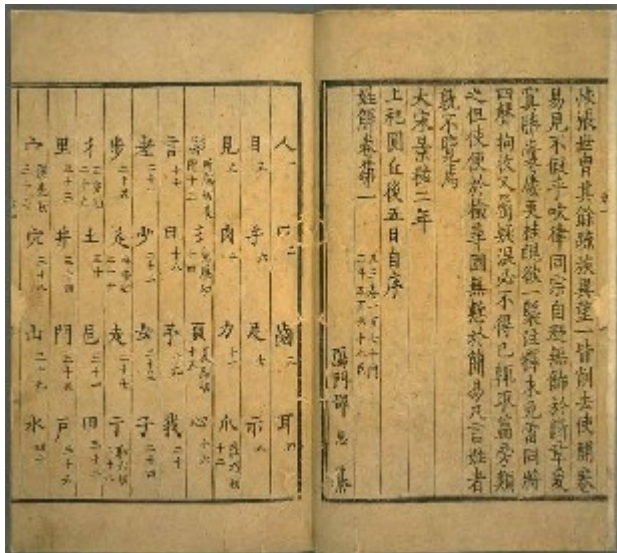 張世冑其餘疏族異望一皆削去使開卷
易見不假乎吹律同宗自無飾於辭章爰
更欲一槩注釋未免雷同將
四聲拘收又慮疑混必不得已輒取篇旁類
之但使便於檢尋固無愧於簡易凡言姓者
既不覽焉
大宋景祐二年
上祀圓丘後五日自序
姓解卷第一 凡三卷一百七十門
二千五百六十八氏
鴈門邵思纂
人一 口二 齒三 耳四
目五 手六 足七 示八
見九 肉十 力十一 爪十二
彡十四 頁十五 心十六
言十七 曰十八 予十九 我二十
老二十一 少二十二 女二十三 子二十四
步二十五 辵二十六 走二十七 亍二十八
才二十九 土三十 邑三十一 田三十二
里三十三 井三十四 門三十五 戶三十六
宀三十七 穴三十八 山三十九 水四十